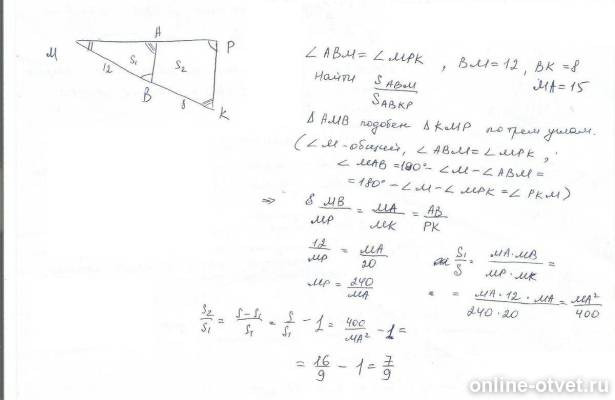 M
A
P
12
S₁
S₂
B
8
K
∠ABM = ∠MPK , BM=12, BK=8
Найти S_ABM / S_ABKP
MA=15
ΔAMB подобен ΔKMP по трем углам.
(∠M-общий, ∠ABM=∠MPK,
∠MAB=180°-∠M-∠ABM=
=180°-∠M-∠MPK=∠PKM)
⇒ MB/MP = MA/MK = AB/PK
12/MP = MA/20
S₁/S = MA·MB / MP·MK =
MP = 240/MA
= MA·12·MA / 240·20 = MA²/400
S₂/S₁ = S-S₁/S₁ = S/S₁ - 1 = 400/MA² - 1 =
= 16/9 - 1 = 7/9
online-otvet.ru